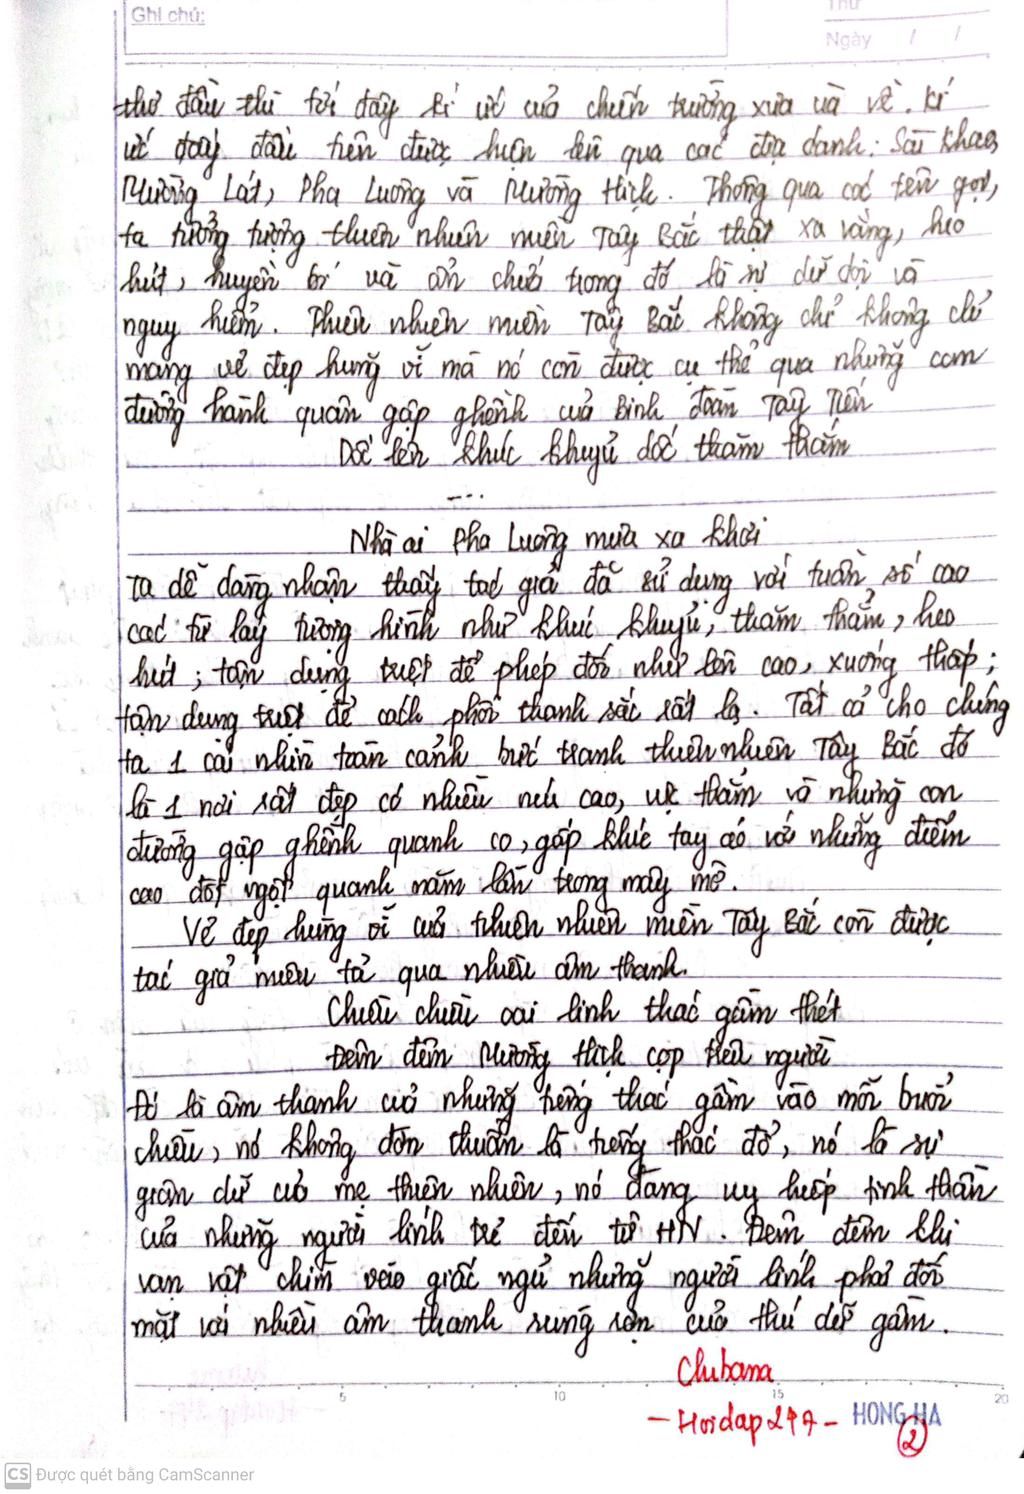 Ghi chú:
Thứ
Ngày / /
thơ đầu thì tới đây kí ức của chiến trường xưa ùa về. Kí
ức đoạn đầu tiên được hiện lên qua các địa danh: Sài Khao,
Mường Lát, Pha Luông và Mường Hịch. Thông qua các tên gọi,
ta tưởng tượng thiên nhiên miền Tây Bắc thật xa vắng, heo
hút, huyền bí và ẩn chứa trong đó là sự dữ dội và
nguy hiểm. Thiên nhiên miền Tây Bắc không chỉ không chỉ
mang vẻ đẹp hùng vĩ mà nó còn được cụ thể qua những con
đường hành quân gập ghềnh của Binh đoàn Tây Tiến
Dốc lên khúc khuỷu dốc thăm thẳm
...
Nhà ai Pha Luông mưa xa khơi
Ta dễ dàng nhận thấy tác giả đã sử dụng với tuần số cao
các từ láy tượng hình như khúc khuỷu, thăm thẳm, heo
hút; tận dụng triệt để phép đối như lên cao, xuống thấp;
tận dụng triệt để cách phối thanh sắc rất lạ. Tất cả cho chúng
ta 1 cái nhìn toàn cảnh bức tranh thiên nhiên Tây Bắc đó
là 1 nơi rất đẹp có nhiều núi cao, vực thẳm và những con
đường gập ghềnh quanh co, gấp khúc tay áo với những điểm
cao đột ngột quanh năm lẩn trong mây mờ.
Vẻ đẹp hùng vĩ của thiên nhiên miền Tây Bắc còn được
tác giả miêu tả qua nhiều âm thanh.
Chiều chiều oai linh thác gầm thét
Đêm đêm Mường Hịch cọp trêu người
Đó là âm thanh của những tiếng thác gầm vào mỗi buổi
chiều, nó không đơn thuần là tiếng thác đổ, nó là sự
giận dữ của mẹ thiên nhiên, nó đang uy hiếp tinh thần
của những người lính trẻ đến từ HN. Đêm đêm khi
vạn vật chìm vào giấc ngủ những người lính phải đối
mặt với nhiều âm thanh rùng rợn của thú dữ gầm.
Chibana
- Hoidap247 -
5 10 15 20
HONG HA
2
CS Được quét bằng CamScanner